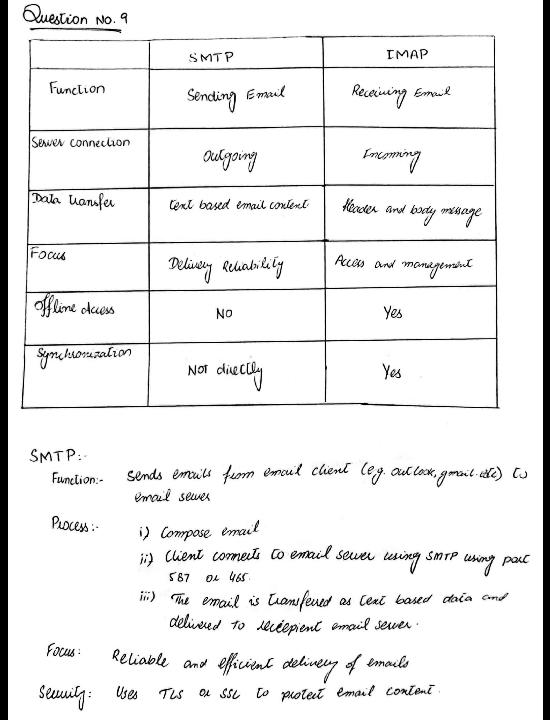 Question No. 9
SMTP IMAP
Function Sending Email Receiving Email
Server connection Outgoing Incoming
Data transfer text based email content Header and body message
Focus Delivery Reliability Access and management
Offline access NO Yes
Synchronization NOT directly Yes
SMTP:-
Function:- Sends emails from email client (e.g. outlook, gmail etc) to
email server
Process:- i) Compose email
ii) Client connects to email server using SMTP using port
587 or 465.
iii) The email is transferred as text based data and
delivered to receipient email server.
Focus: Reliable and efficient delivery of emails
Security: Uses TLS or SSL to protect email content.